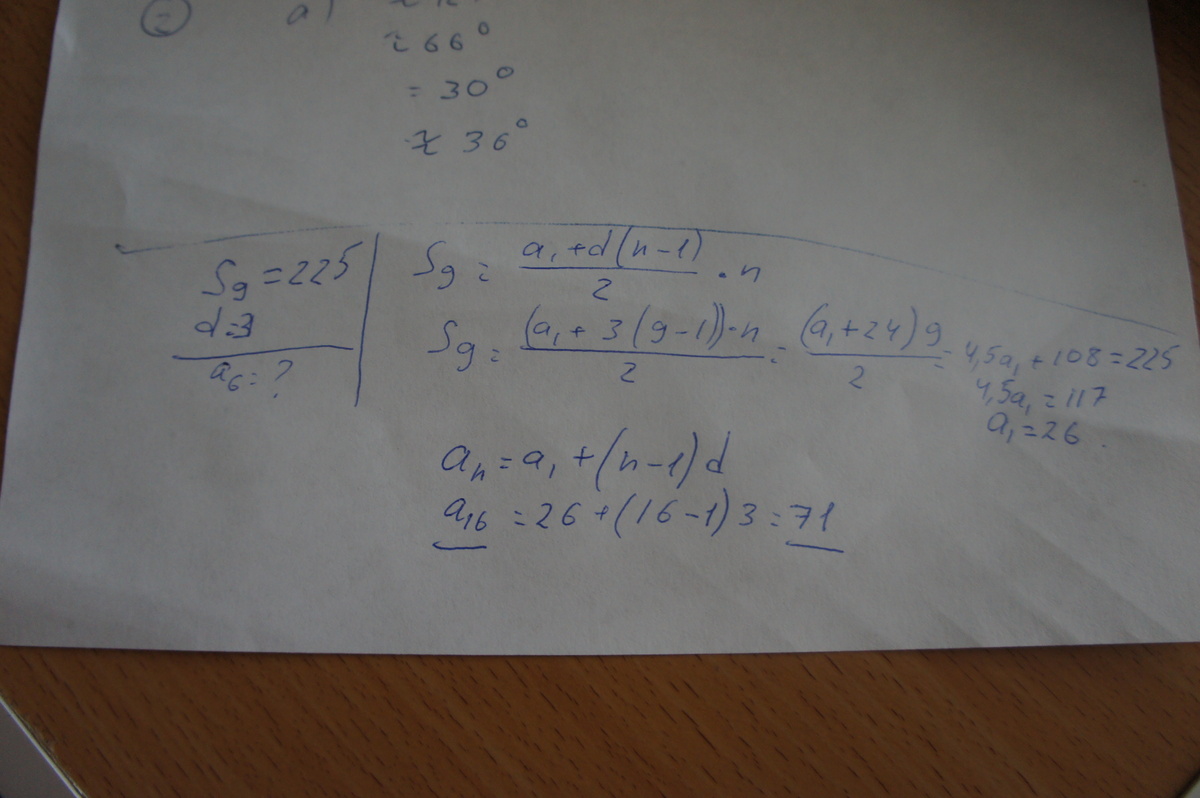 ② a)
≈ 66°
= 30°
≈ 36°
S₉ = 225
d=3
a₆ = ?
S₉ = (a₁+d(n-1))/2 · n
S₉ = ((a₁ + 3(9-1))·n)/2 = ((a₁+24)9)/2 = 4,5a₁ + 108 = 225
4,5a₁ = 117
a₁ = 26.
aₙ = a₁ + (n-1)d
a₁₆ = 26 + (16-1)3 = 71